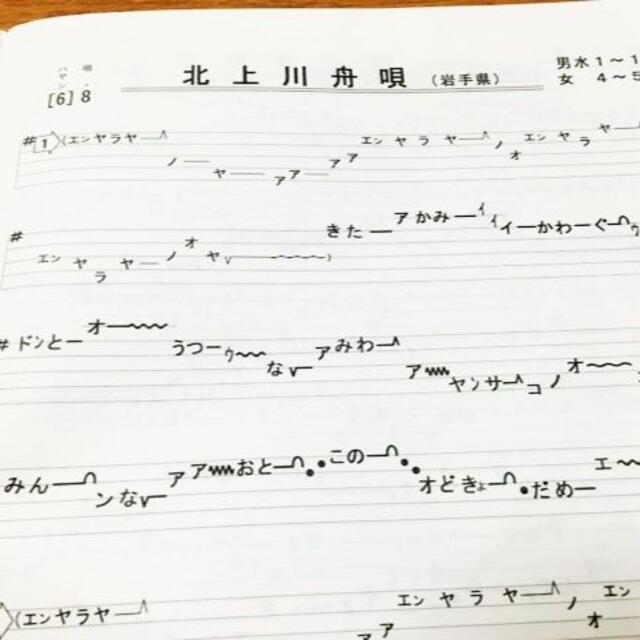 唄・ハヤシ
[6]8
北上川舟唄（岩手県）
男水1～1
女 4～5
# 1 (エンヤラヤー ノー ヤー アアー アア エンヤラヤーノ オ エンヤラヤー
# エンヤラヤーノオヤー) きたーアかみーイイイーかわーぐーゥ
# ドンとーオー うつーゥ なーアみわー アヤンサーコノオー
みんーンなーアアおとーこのーオどきょーだめーエー
(エンヤラヤー アア エンヤラヤーノ エン